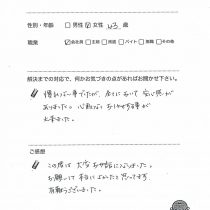 性別・年齢 □男性 ☑女性 43 歳
職業 ☑会社員 □主婦 □パイト □その他
解決までの対応で、何かお気づきの点があればお聞かせ下さい。
慣れない事でしたが、全てにおいて安心感が
ありました。心配なく
ご感想
この度は大変お世話になりました。
お願いして本当によかったと思ってます。
有難うございました。